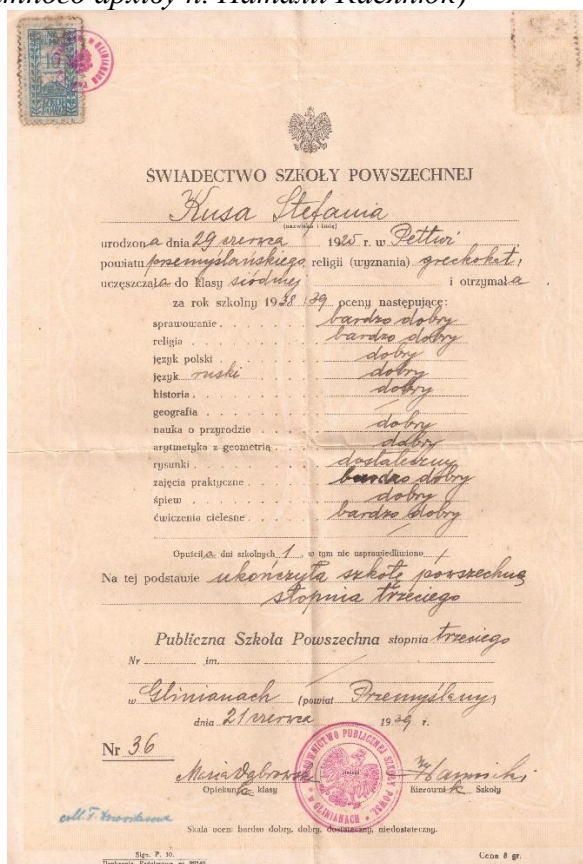 много архіву п. Наталії
10
W GLINIANACH
ŚWIADECTWO SZKOŁY POWSZECHNEJ
Kusa Stefania
(nazwisko i imię)
urodzona dnia 29 czerwca 1925 r. w Pettwi
powiatu przemyślańskiego religii (wyznania) greckokat,
uczęszczała do klasy siódmej i otrzymała
za rok szkolny 1938/39 oceny następujące:
sprawowanie . . . . bardzo dobry
religia . . . . bardzo dobry
język polski . . . . dobry
język ruski . . . . dobry
historia . . . . dobry
geografia . . . .
nauka o przyrodzie dobry
arytmetyka z geometrią . dobry
rysunki . . . . dostateczny
zajęcia praktyczne . . . bardzo dobry
śpiew . . . . dobry
ćwiczenia cielesne . . . bardzo dobry
Opuściła dni szkolnych 1, w tym nie usprawiedliwiono /
Na tej podstawie ukończyła szkołę powszechną
stopnia trzeciego
Publiczna Szkoła Powszechna stopnia trzeciego
Nr im.
w Glinianach (powiat Przemyślany)
dnia 21 czerwca 1939 r.
Nr 36
KIEROWNICTWO PUBLICZNEJ SZKOŁY POWSZ. W GLINIANACH
Maria Dąbrowska
Opiekunka klasy Kierownik Szkoły
Skala ocen: bardzo dobry, dobry, dostateczny, niedostateczny.
Sign. P. 10. Cena 8 gr.